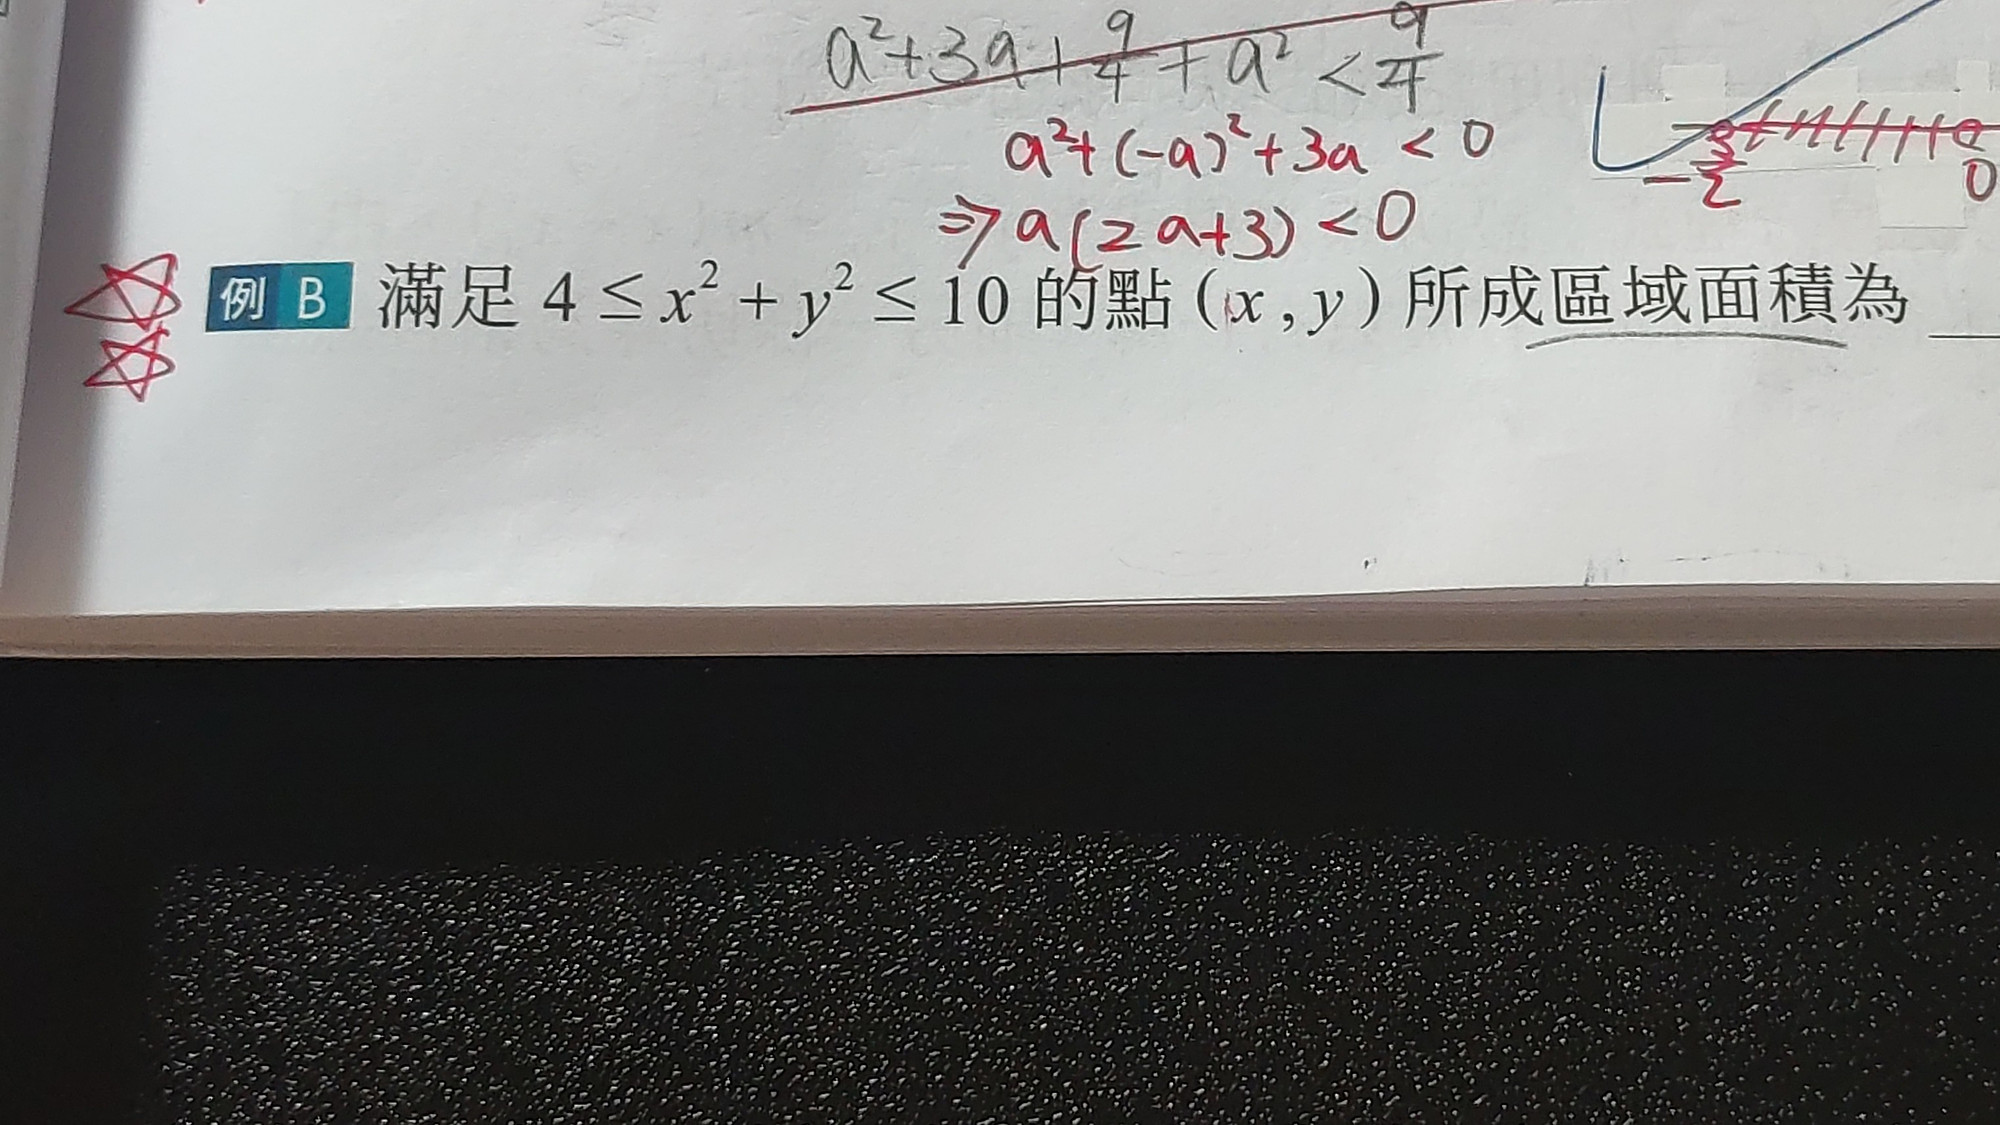 a²+3a+9/4+a²<9/4
a²+(-a)²+3a<0
⇒a(2a+3)<0
-3/2 0
例 B 滿足 4 ≤ x² + y² ≤ 10 的點 (x , y) 所成區域面積為